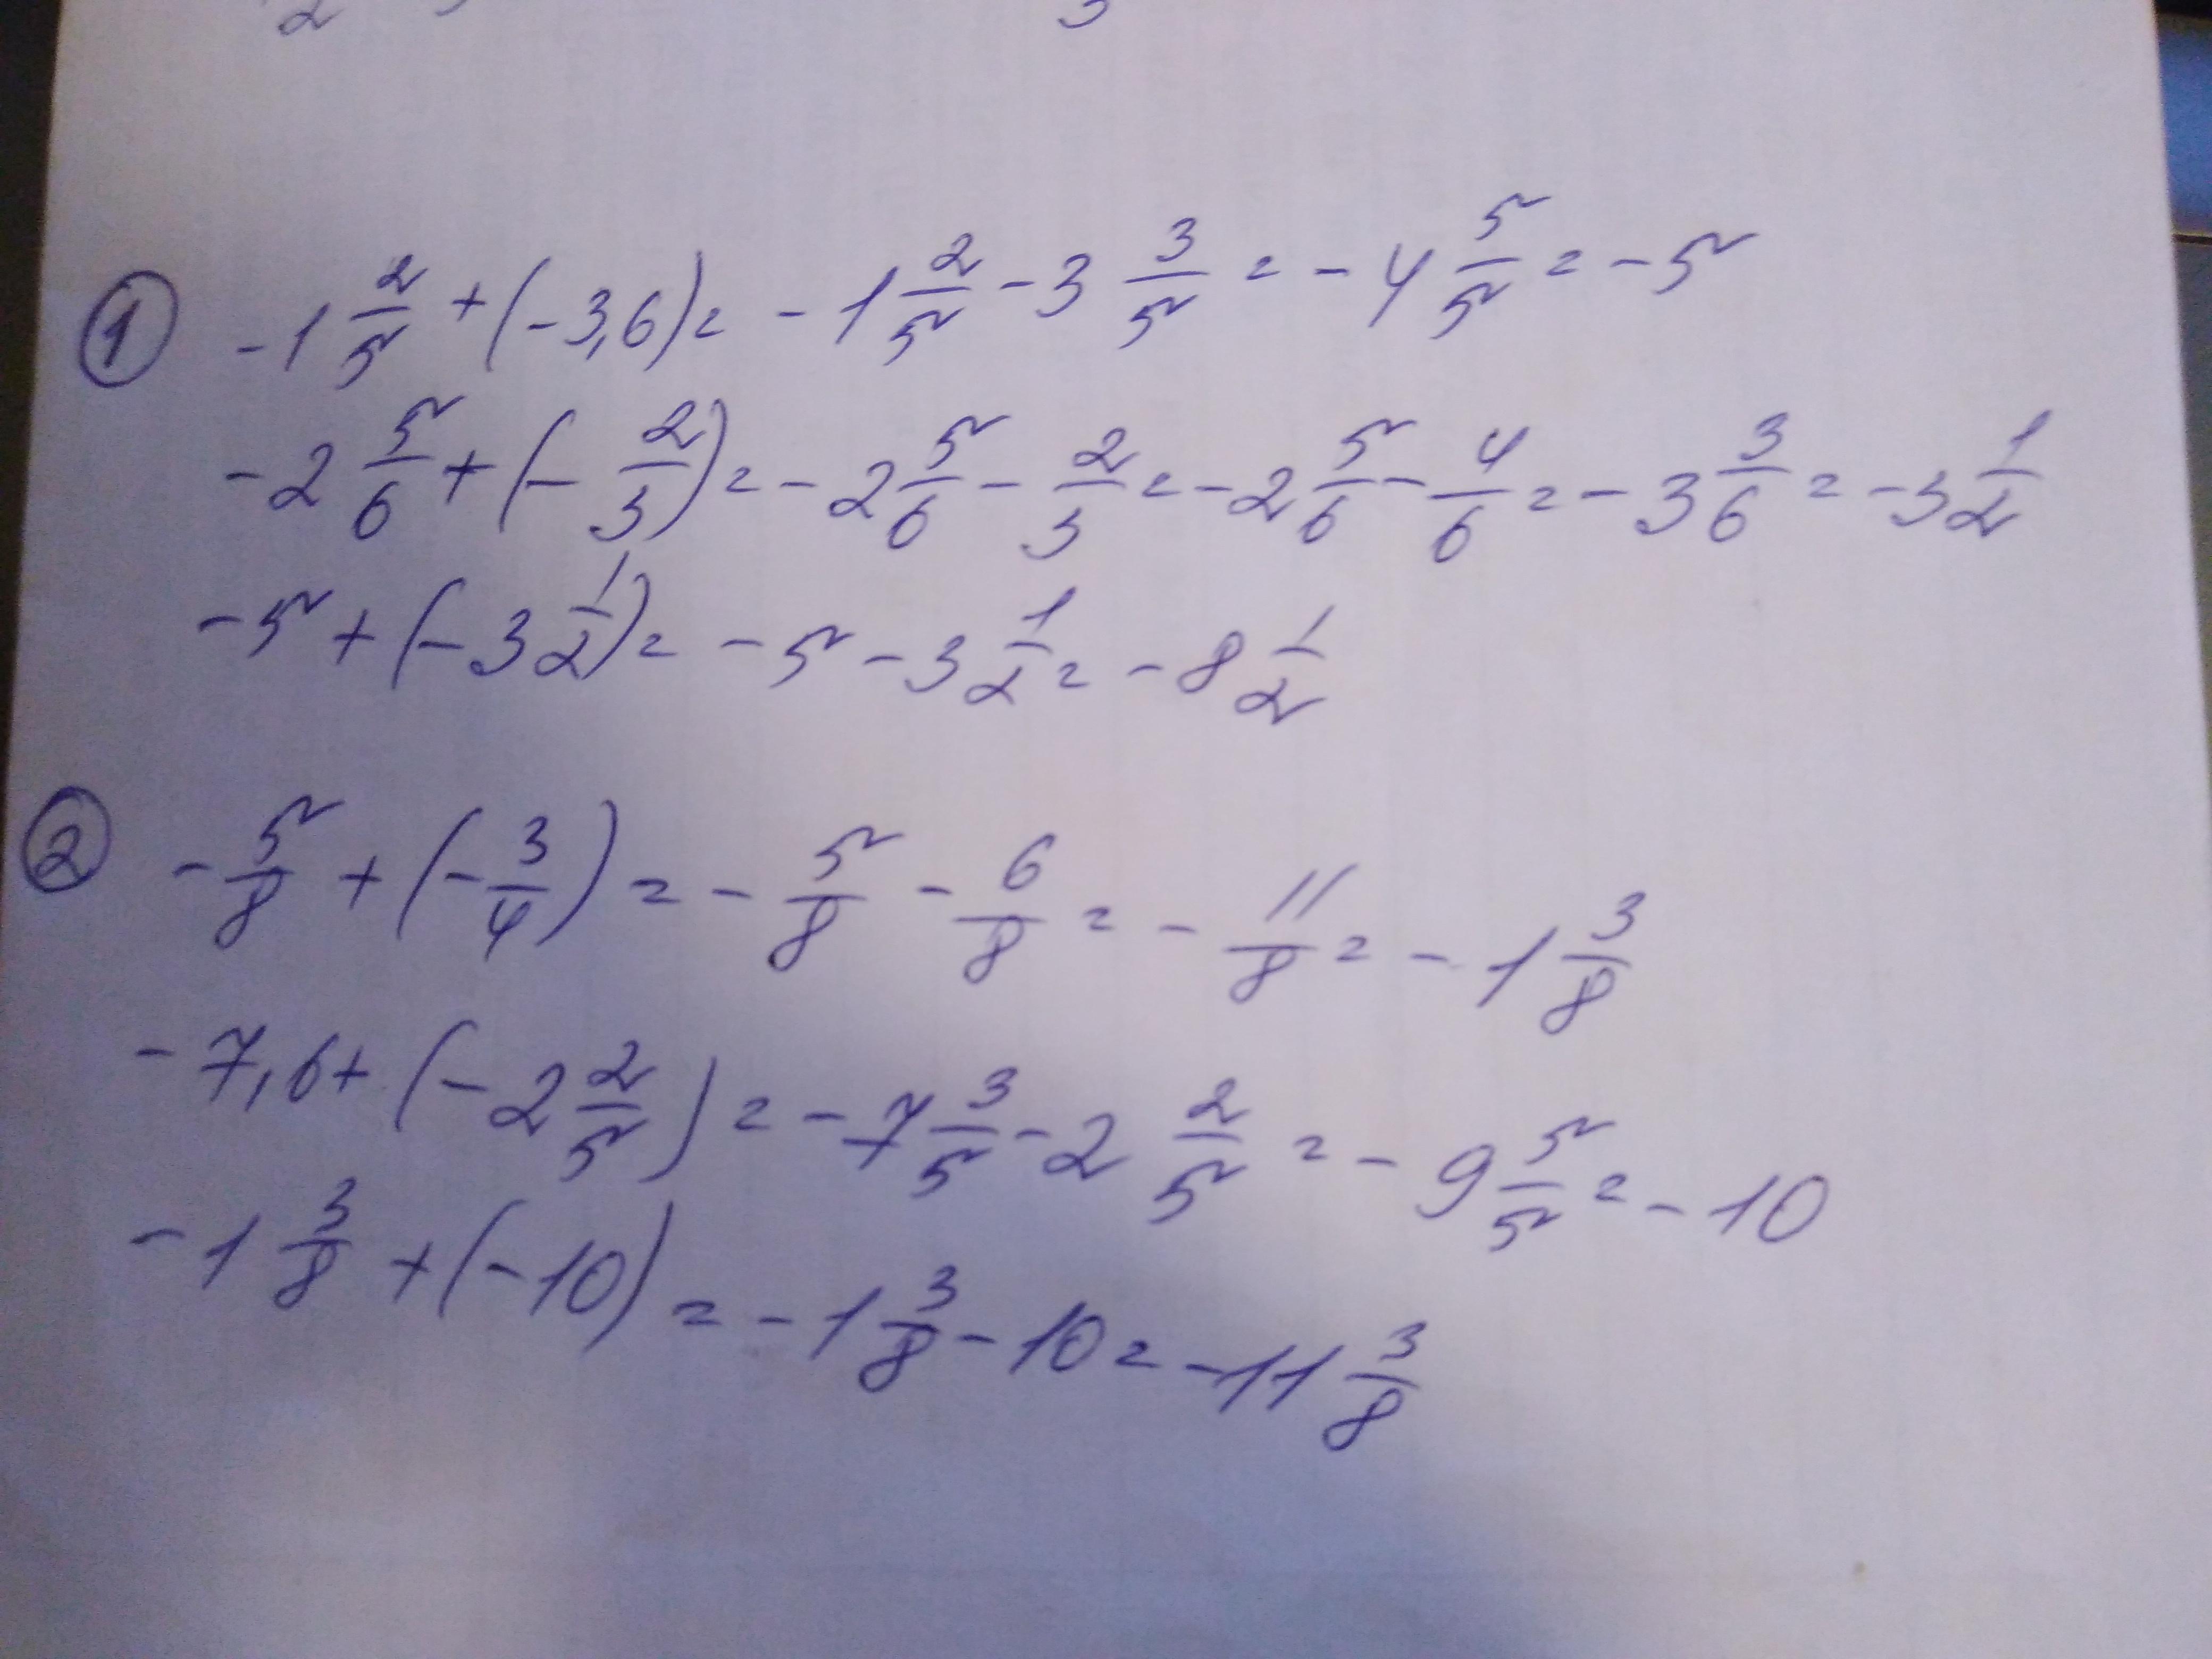 ① -1 2/5 + (-3,6) = -1 2/5 - 3 3/5 = -4 5/5 = -5
-2 5/6 + (-2/3) = -2 5/6 - 2/3 = -2 5/6 - 4/6 = -3 3/6 = -3 1/2
-5 + (-3 1/2) = -5 - 3 1/2 = -8 1/2
② -5/8 + (-3/4) = -5/8 - 6/8 = -11/8 = -1 3/8
-7,6 + (-2 2/5) = -7 3/5 - 2 2/5 = -9 5/5 = -10
-1 3/8 + (-10) = -1 3/8 - 10 = -11 3/8